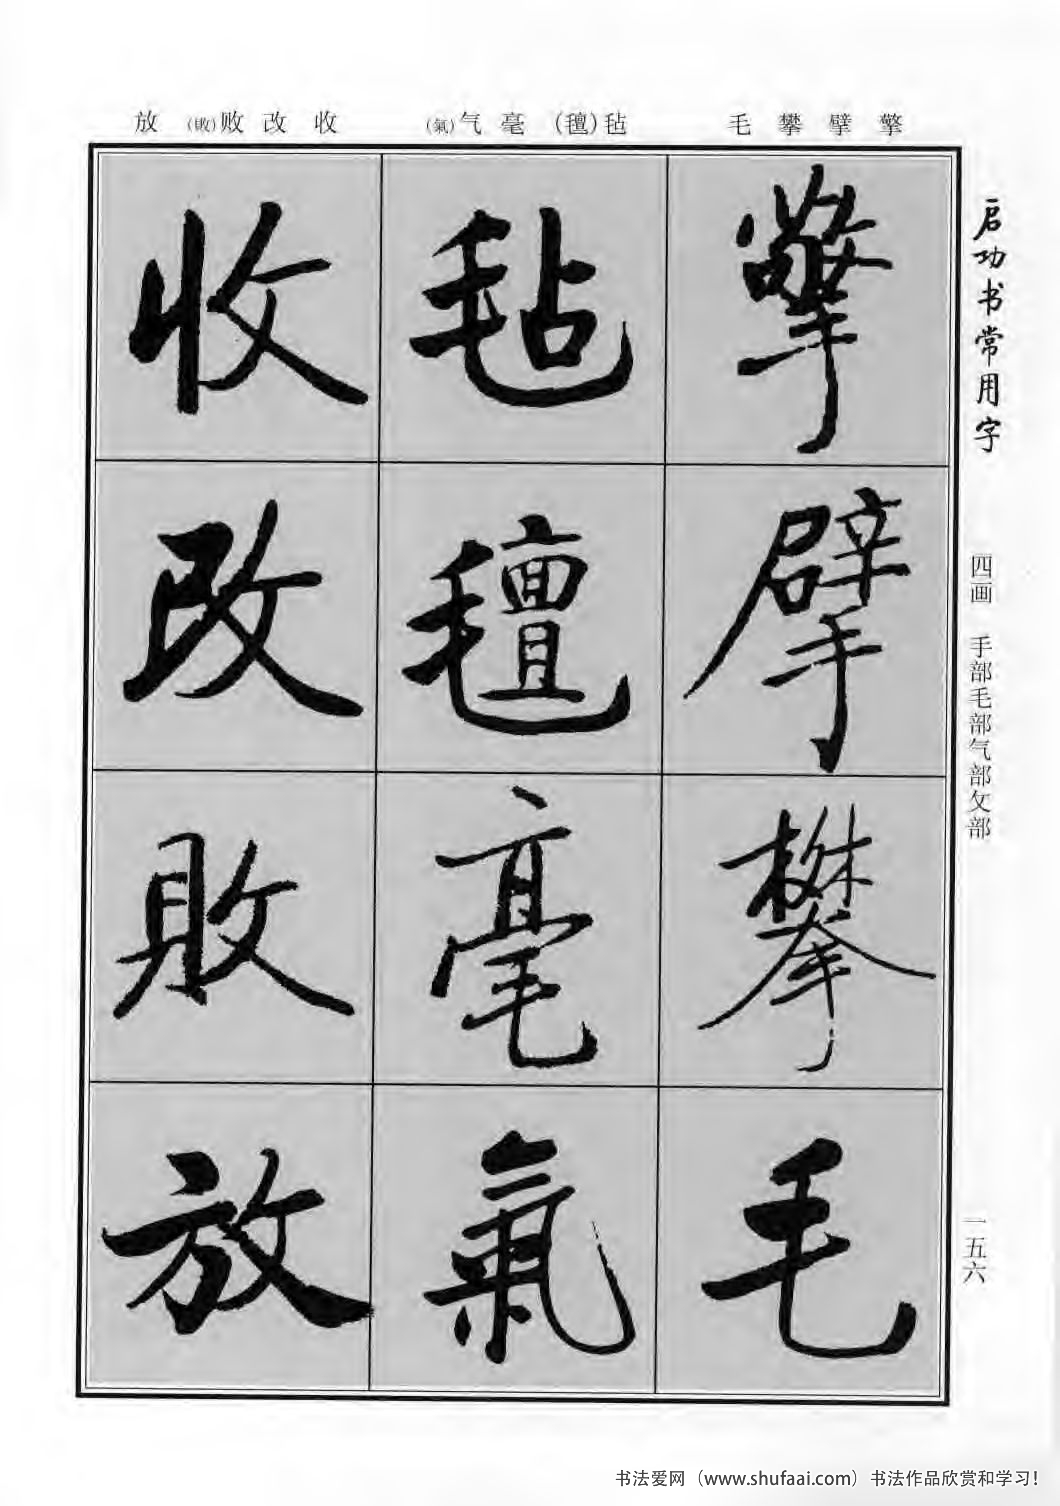 放 (敗)败 改 收
(氣)气 毫 (氊)毡
毛 攀 擘 擎
启功书常用字
四画 手部毛部气部攵部
一五六
擎
擘
攀
毛
毡
氊
毫
氣
收
改
敗
放
书法爱网（www.shufaai.com）书法作品欣赏和学习！